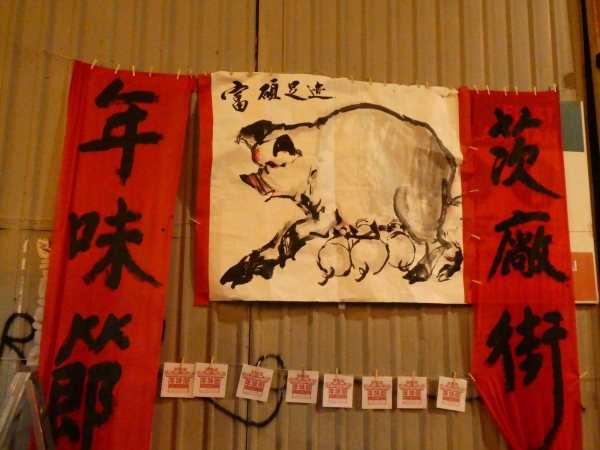 茨廠街
富碩足迹
年味節